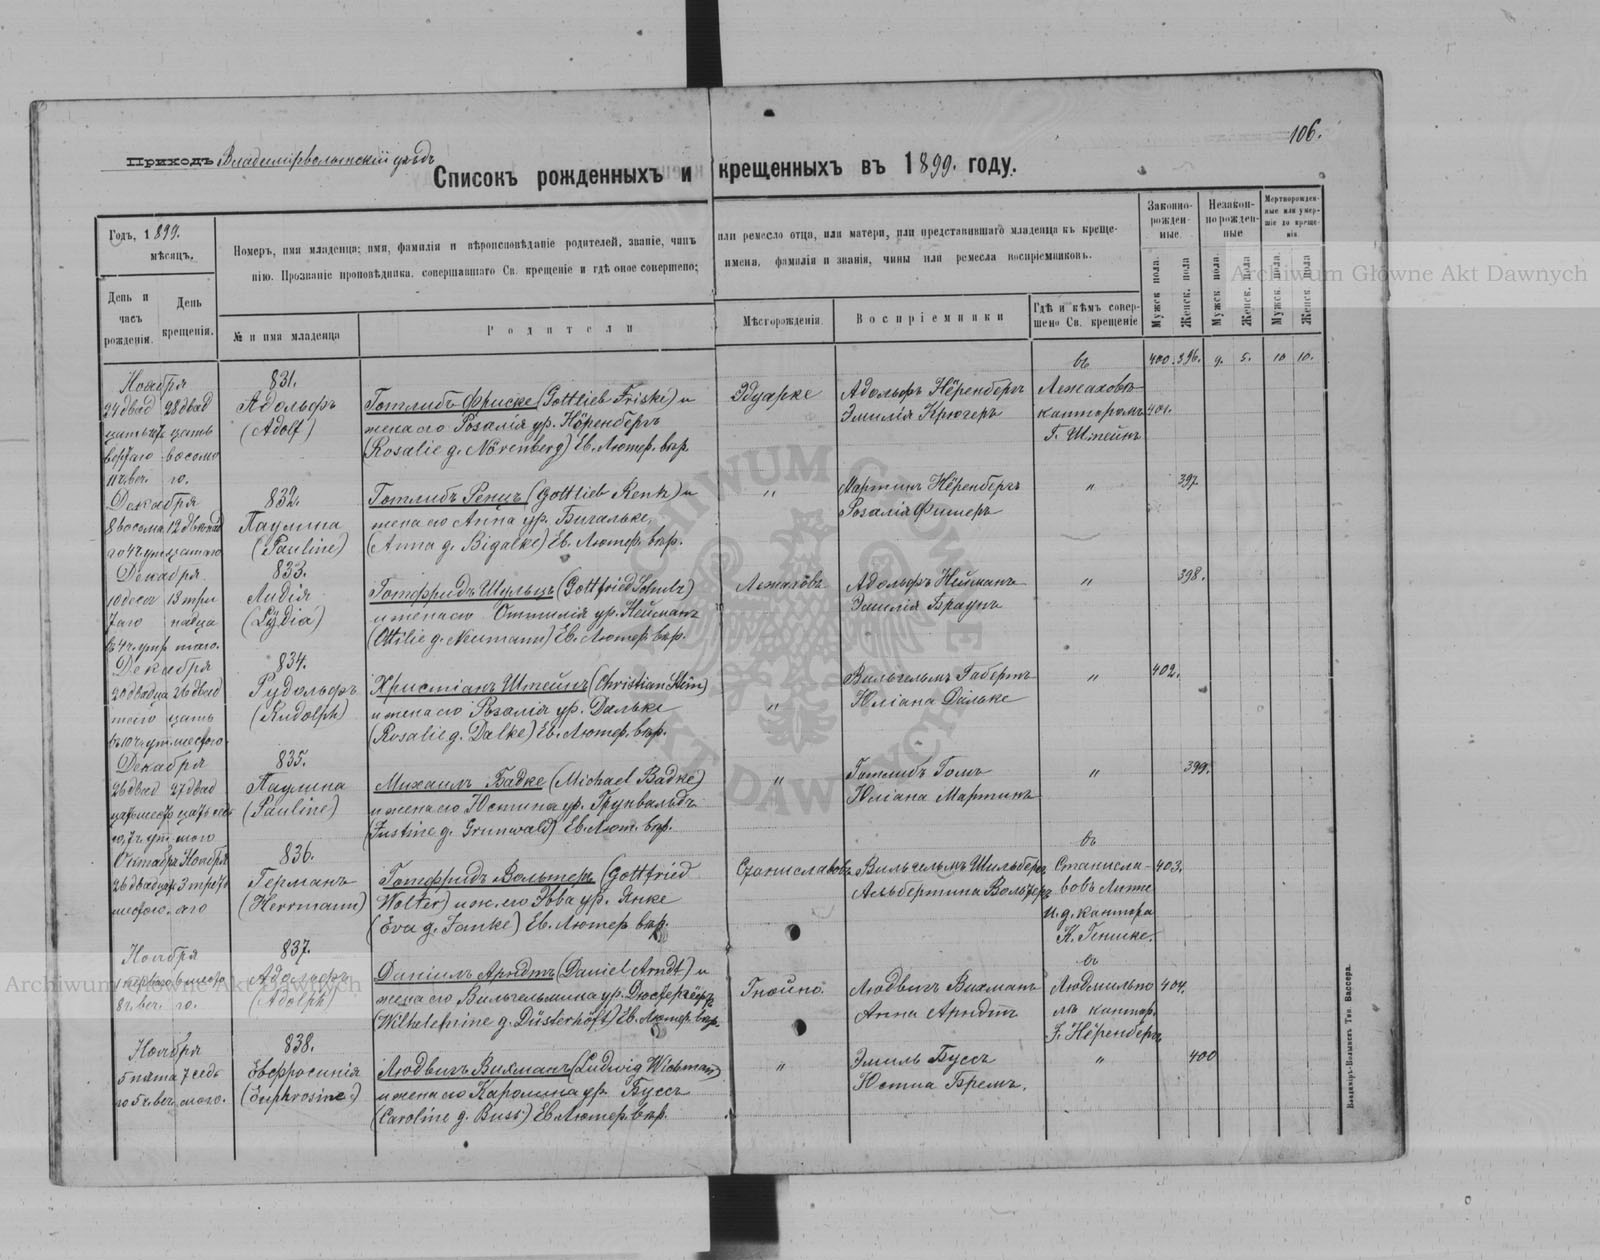 106.
Приходъ Владимірволынскій уѣздъ
Списокъ рожденныхъ и крещенныхъ въ 1899. году.
Годъ, 1899. мѣсяцъ.
День и часъ рожденія.
День крещенія.
Номеръ, имя младенца; имя, фамилія и вѣроисповѣданіе родителей, званіе, чинъ или ремесло отца, или матери, или представившаго младенца къ креще-
нію. Прозваніе проповѣдника, совершавшаго Св. крещеніе и гдѣ оное совершено; имена, фамиліи и званія, чины или ремесла воспріемниковъ.
№ и имя младенца
Родители
Мѣсторожденія.
Воспріемники
Гдѣ и кѣмъ совершено Св. крещеніе
Законно-рожденные
Незакон-норожденные
Мертворожденные или умершіе до крещенія.
Мужск. пола.
Женск. пола
Мужск. пола.
Женск. пола
Мужск. пола.
Женск. пола
въ 400. 396. 9. 5. 10 10.
Ноября
831.
24 двад 28 двад
Адольфъ
Готлибъ Фриске (Gottlieb Friske) и
Эдуарке
Адольфъ Нёренбергъ
Лежаховѣ
(Adolf)
жена его Розалія ур. Нёренбергъ
Эмилія Крюгеръ
канторомъ
401.
(Rosalie g. Nörenberg) Ев. Лютер. вѣр.
Г. Штейнъ
11 ч. веч. го.
Декабря
832.
Готлибъ Ренцъ (Gottlieb Rentz) и
"
Мартинъ Нёренбергъ
"
397.
Паулина
жена его Анна ур. Бигальке,
Розалія Фишеръ
(Pauline)
(Anna g. Bigalke) Ев. Лютер. вѣр.
Декабря
833.
Лидія
Готфридъ Шульцъ (Gottfried Schulz)
Лежаховъ
Адольфъ Нейманъ
"
398.
(Lydia)
и жена его Оттилія ур. Нейманъ
Эмилія Браунъ
(Ottilie g. Neumann) Ев. Лютер. вѣр.
Декабря
834.
Рудольфъ
Христіанъ Штейнъ (Christian Stein)
"
Вильгельмъ Габертъ
"
402.
(Rudolph)
и жена его Розалія ур. Дальке
Юліана Дальке
(Rosalie g. Dalke) Ев. Лютер. вѣр.
Декабря
835.
26 двад 27 двад
Паулина
Михаилъ Бадке (Michael Badke)
"
Готлибъ Гомъ
"
399.
(Pauline)
и жена его Юстина ур. Грунвальдъ
Юліана Мартинъ
(Justine g. Grunwald) Ев. Лют. вѣр.
Октября Ноября
836.
въ
Германъ
Готфридъ Вольтеръ (Gottfried
Станиславовъ
Вильгельмъ Шильбергъ
Станисла-
403.
(Herrmann)
Wolter) и ж. его Эва ур. Янке
Альбертина Вольтеръ
вовѣ
(Eva g. Janke) Ев. Лютер. вѣр.
и. д. кантора
К. Генике.
Ноября
837.
въ
Адольфъ
Даніилъ Арндтъ (Daniel Arndt) и
Гнойно.
Людвигъ Вихманъ
Людмильпо
404.
8 ч. веч. го.
(Adolph)
жена его Вильгельмина ур. Дюстергёфтъ
Анна Арндтъ
лѣ кантор.
(Wilhelmine g. Düsterhöft) Ев. Лютер. вѣр.
F. Нёренбергъ
Ноября
838.
5 пята 7 седь
Евфросинія
Людвигъ Вихманъ (Ludwig Wichmann)
"
Эмиль Буссъ
"
400
го 5 ч. веч. мого.
(Euphrosine)
и жена его Каролина ур. Буссъ
Юстина Бремъ.
(Caroline g. Buss) Ев. Лютер. вѣр.
Владиміръ-Волынскъ Тип. Вассера.
Archiwum Główne Akt Dawnych
Archiwum Główne Akt Dawnych
ARCHIWUM GŁÓWNE AKT DAWNYCH